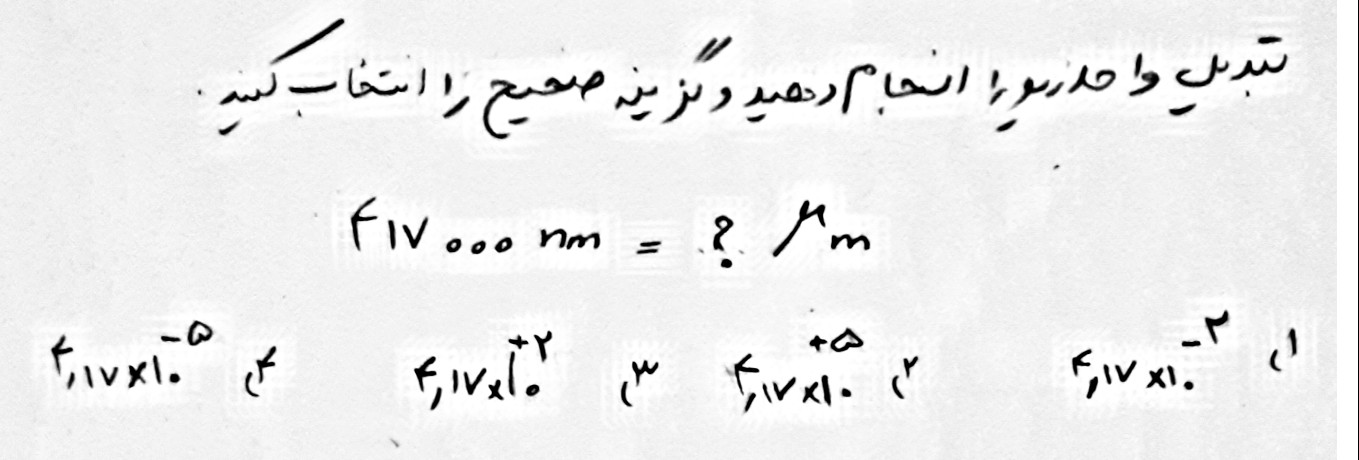 تبدیل واحد زیر را انجام دهید و گزینه صحیح را انتخاب کنید.
۴۱۷۰۰۰ nm = ? μm
۱) ۴٫۱۷×۱۰^-۲ ۲) ۴٫۱۷×۱۰^+۵ ۳) ۴٫۱۷×۱۰^+۲ ۴) ۴٫۱۷×۱۰^-۵